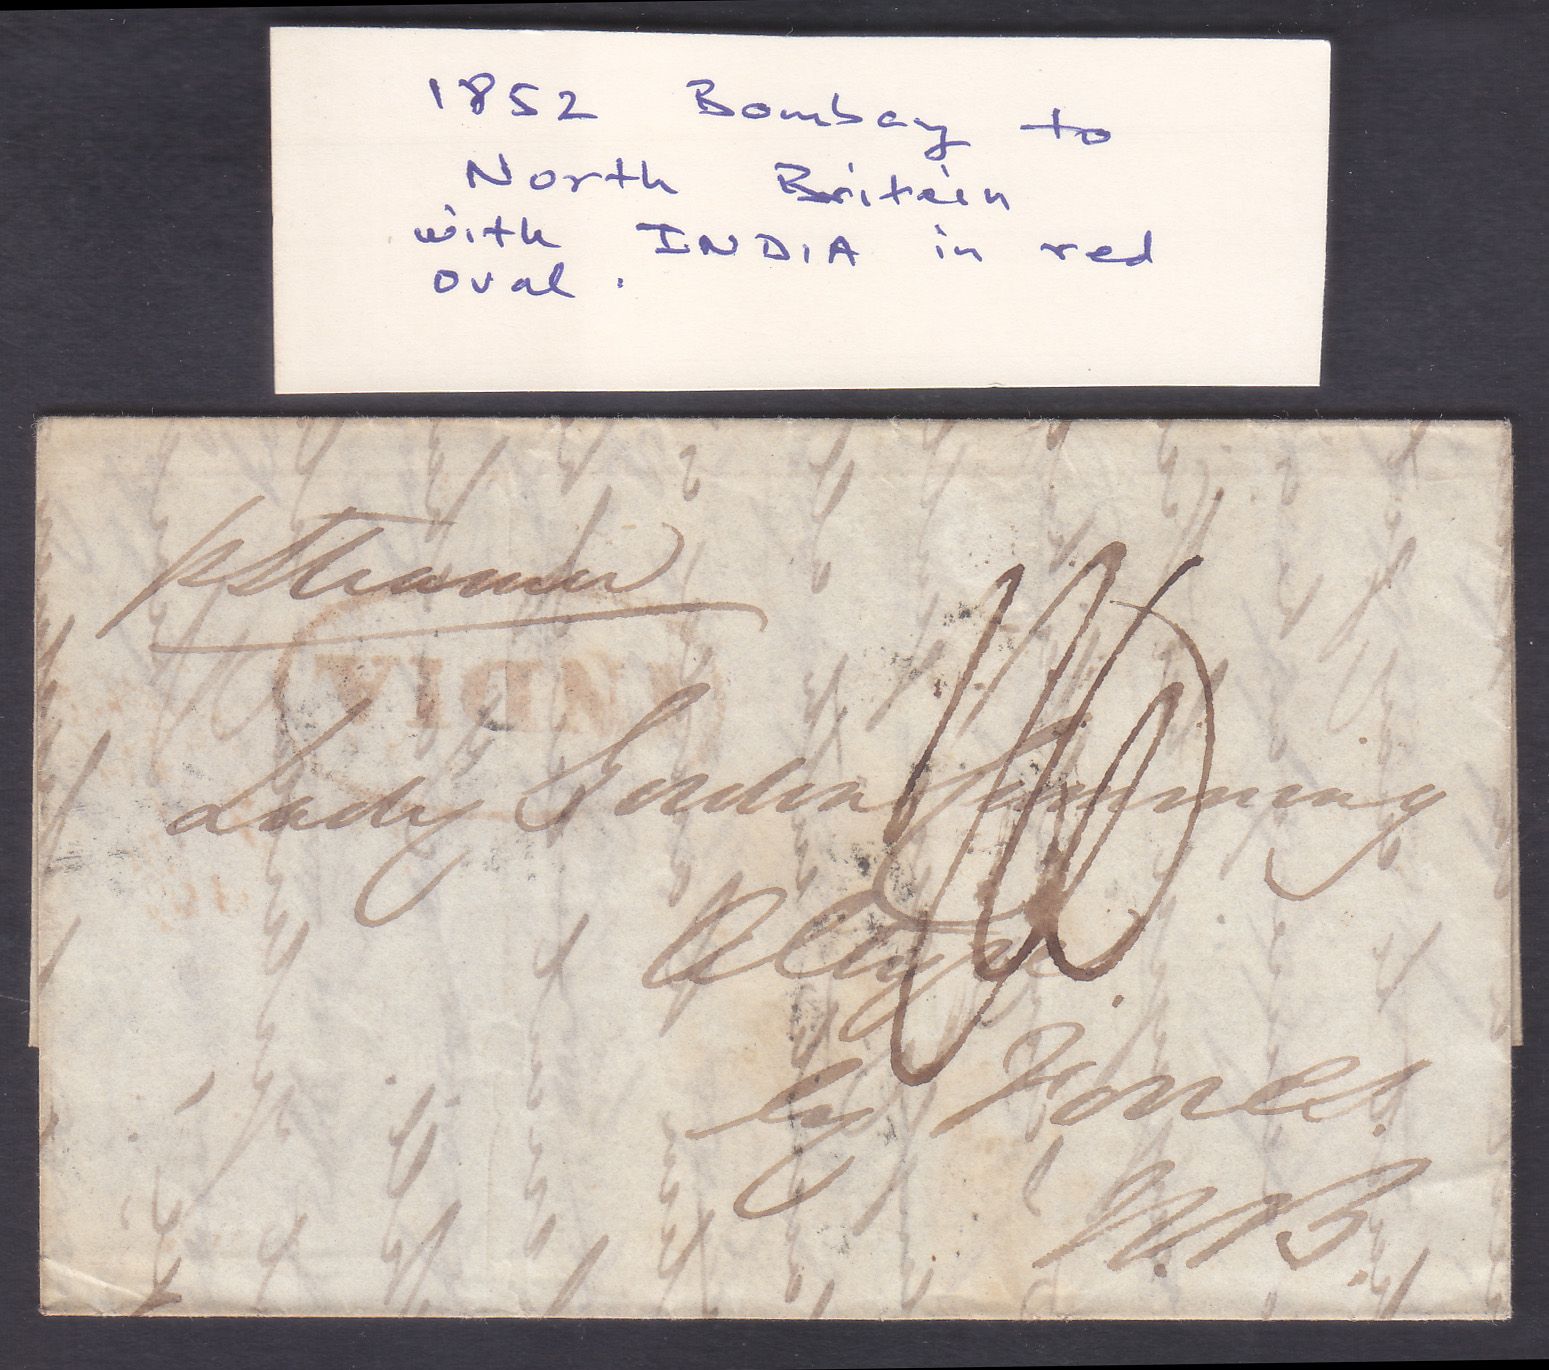 1852 Bombay to
North Britain
with INDIA in red
oval.
p Steamer
INDIA
Lady Gordon Cumming
Altyre
by Forres.
N.B.